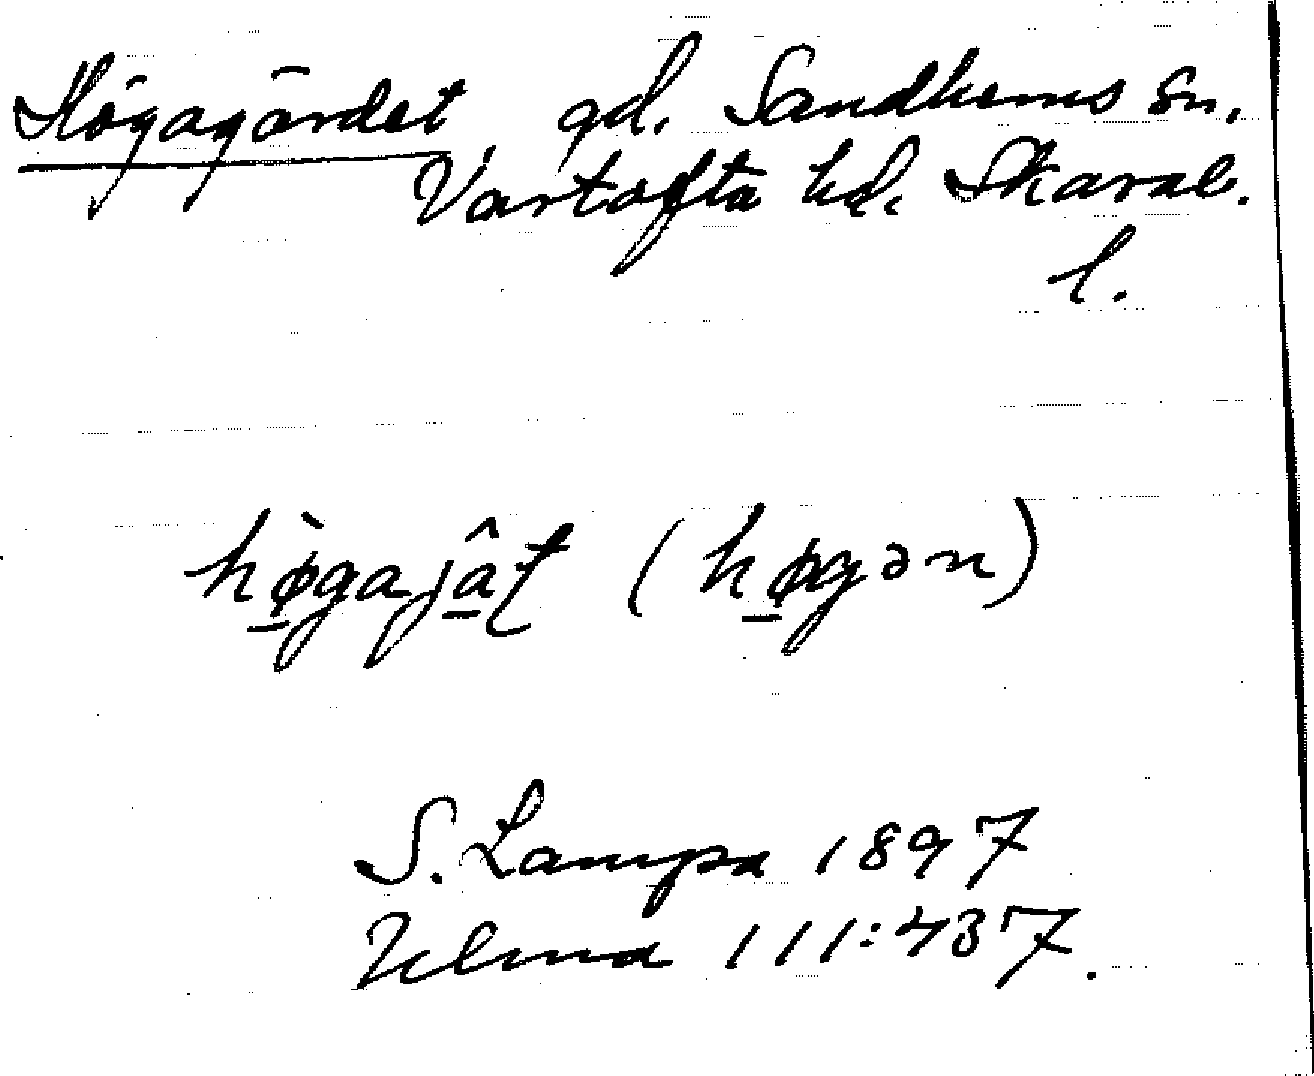 Högagärdet gd. Sandhems sn.
Vartofta hd. Skarab.
l.
hø̱̀gajâ̱t (hø̱gən)
S. Lampa 1897
Ulma 111:437.